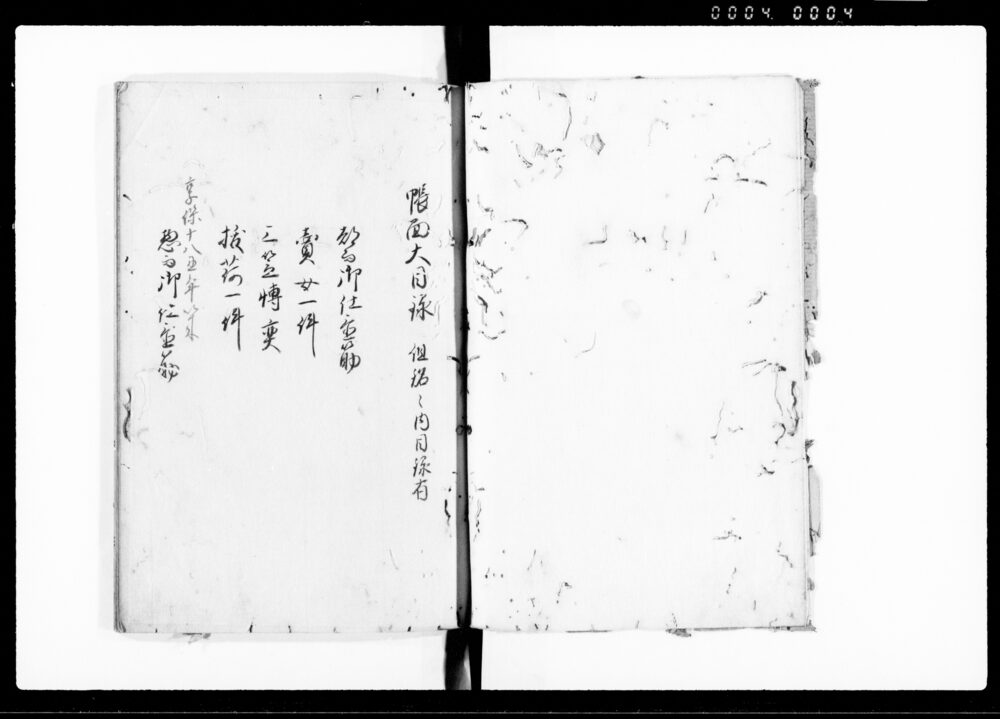 0004 0004
帳面大目録 但銘々内目録有
御仕置筋
賣女一件
三笠博奕
抜荷一件
享保十八丑年以来
御仕置筋